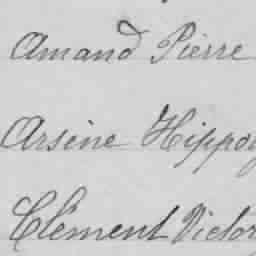 Amand Pierre
Arsène Hippoy
Clément Victor